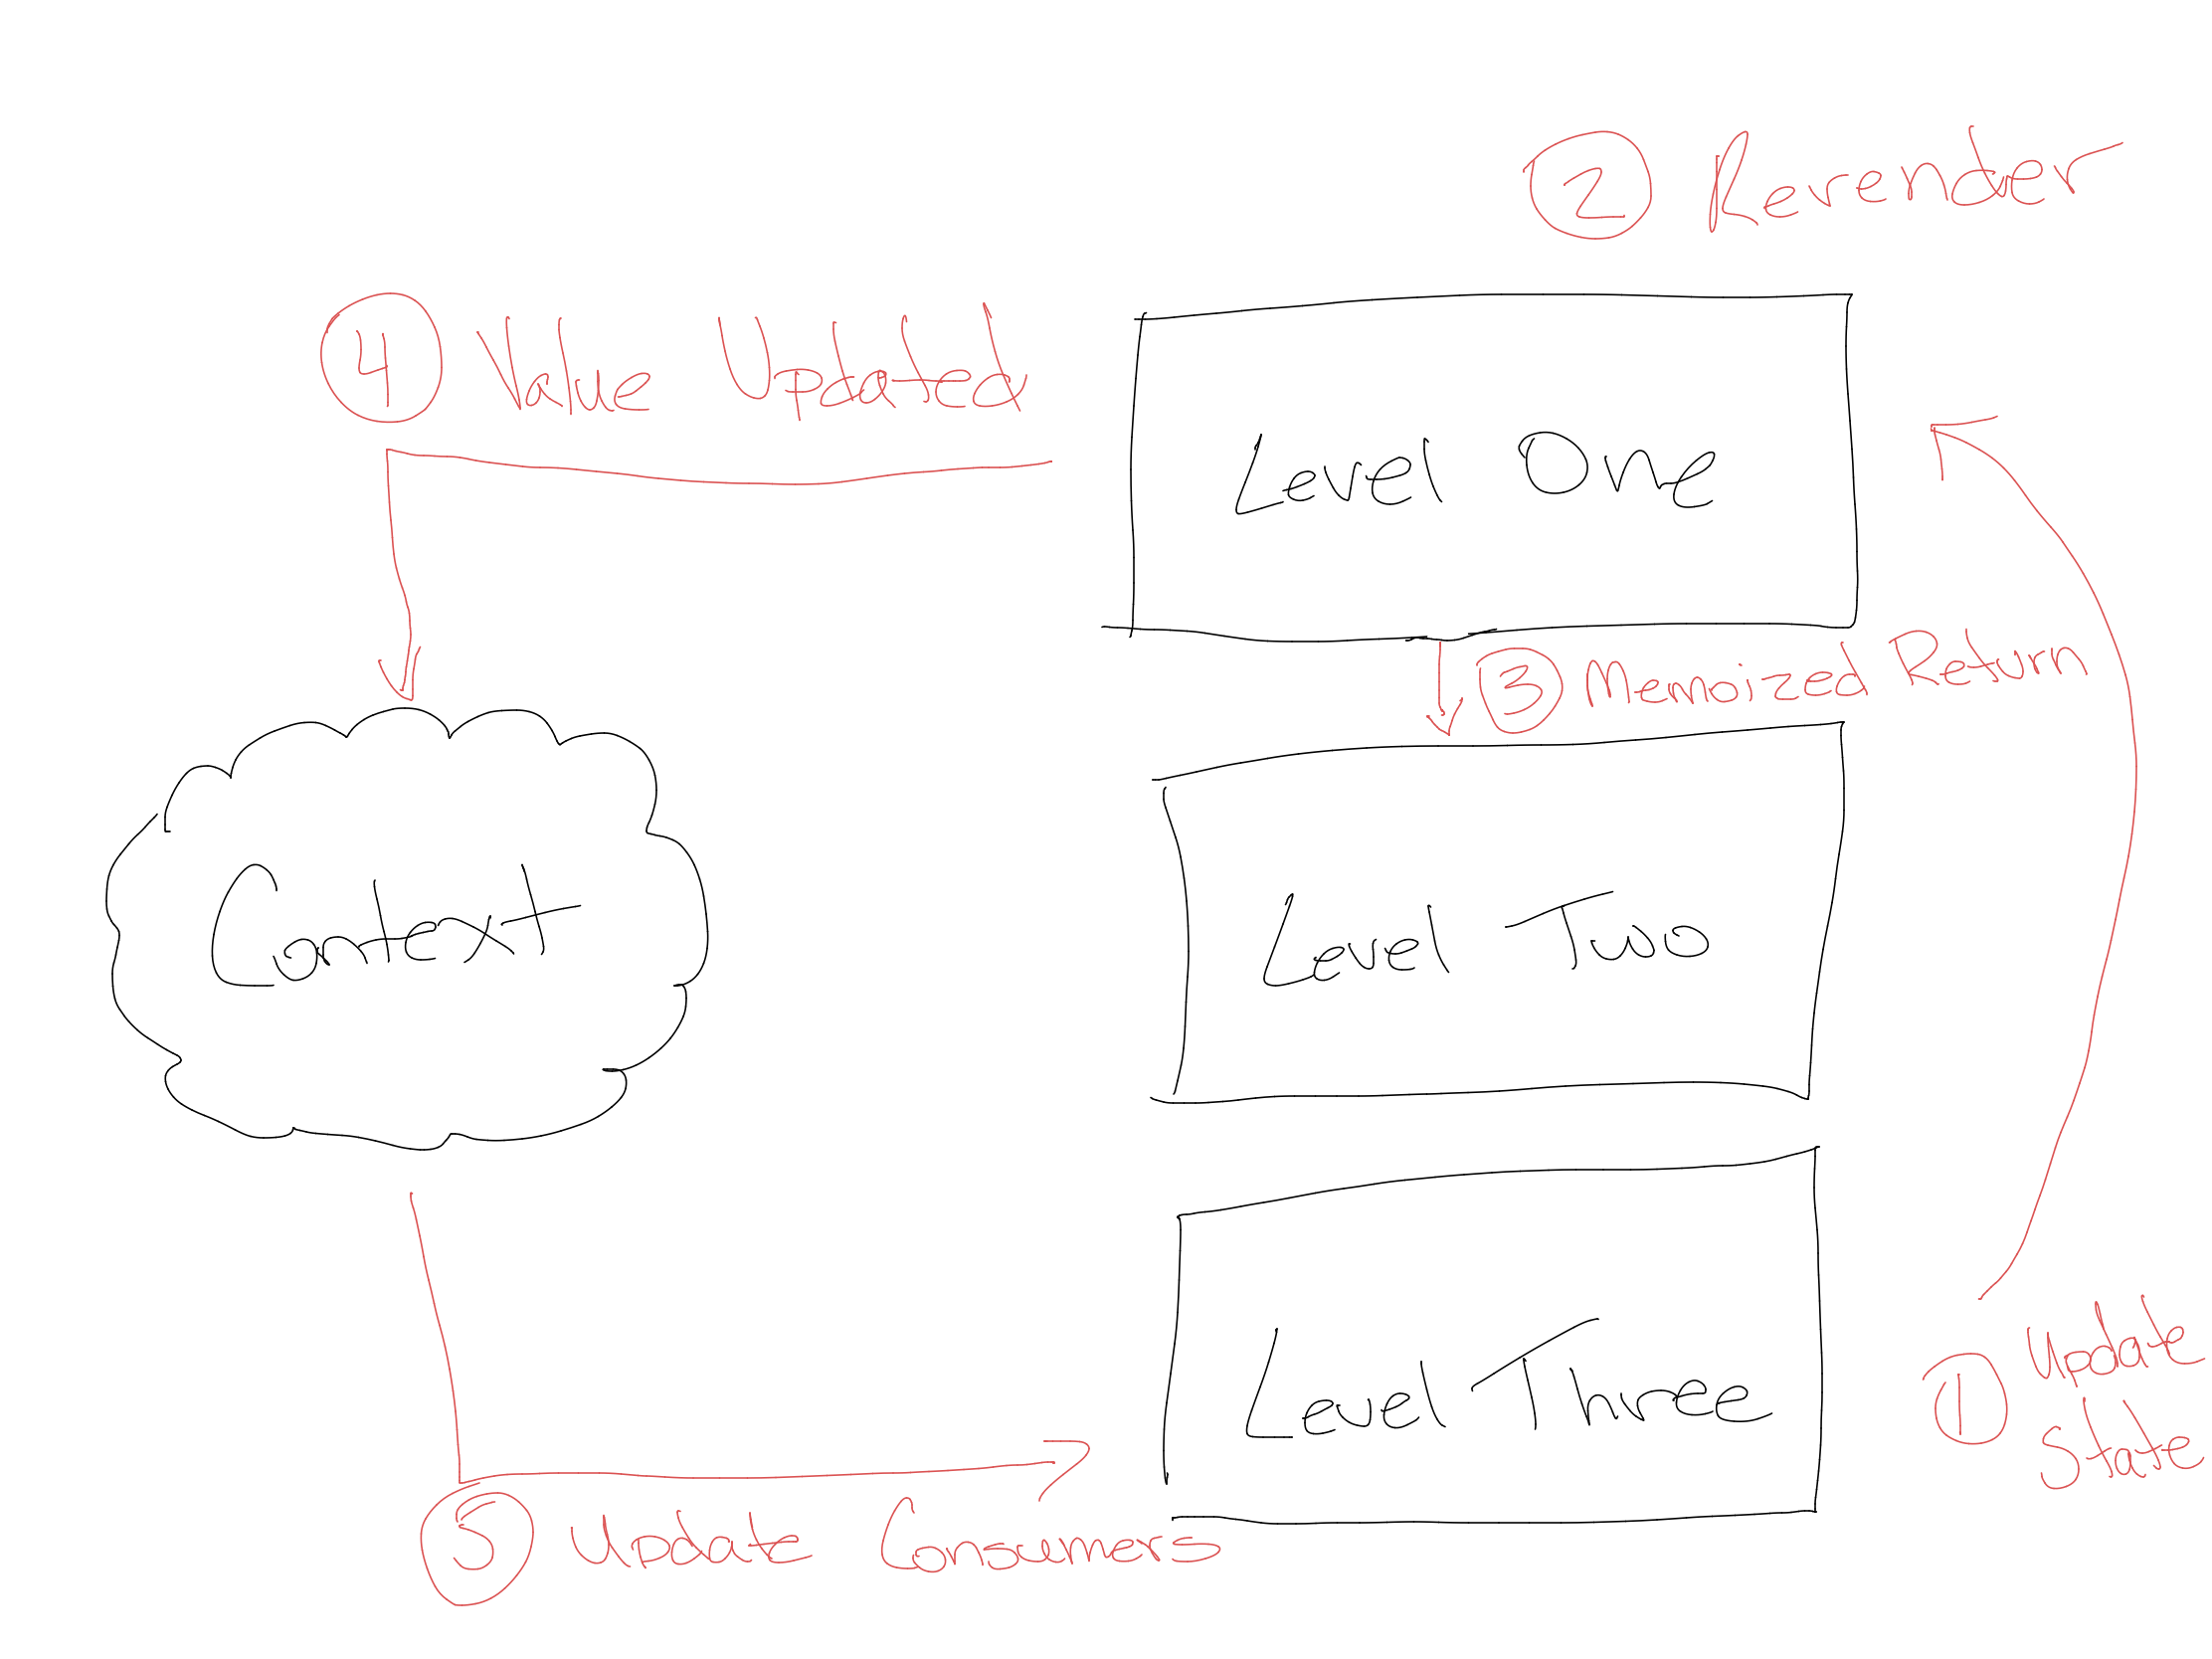 ② Rerender
④ Value Updated
Level One
③ Memoized Return
Context
Level Two
Level Three
① Update
State
⑤ Update Consumers